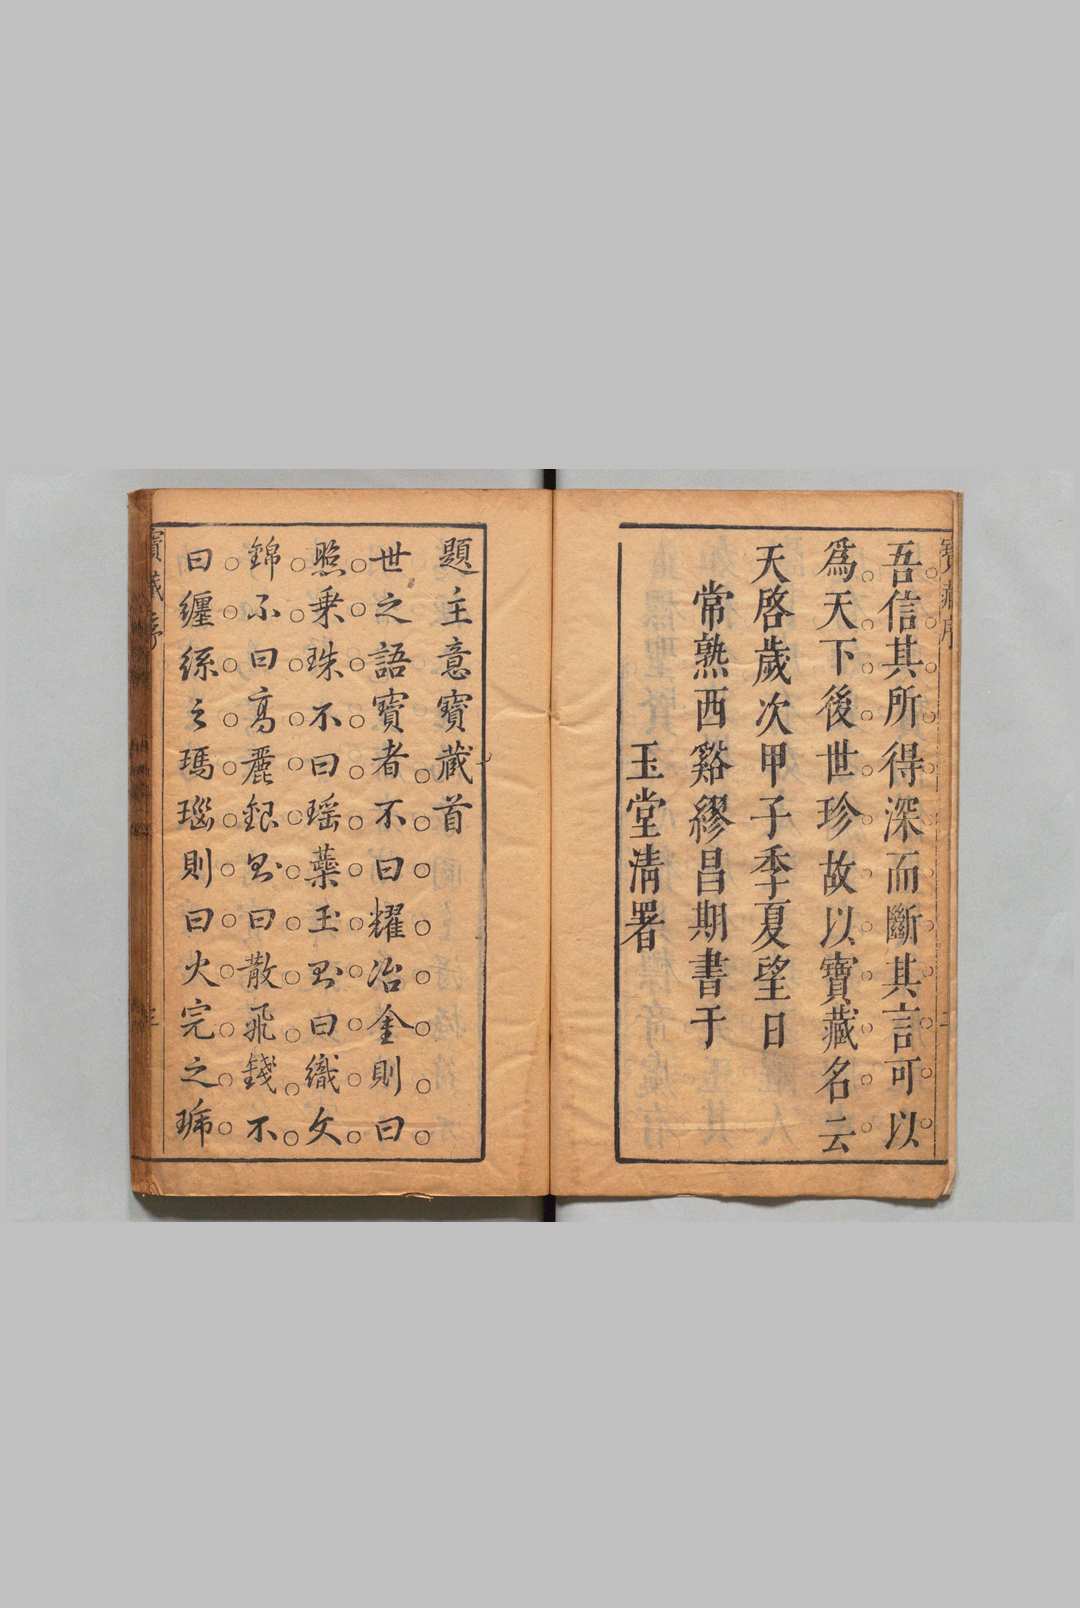 吾信其所得深而斷其言可以
爲天下後世珍故以寶藏名云
天啓歲次甲子季夏望日
常熟西谿繆昌期書于
玉堂清署
題主意寶藏首
世之語寶者不曰耀冶金則曰
照乗珠不曰瑶蘂玉則曰織文
錦不曰高麗銀則曰散飛錢不
曰纏絲之瑪瑙則曰火完之琋
寶藏序